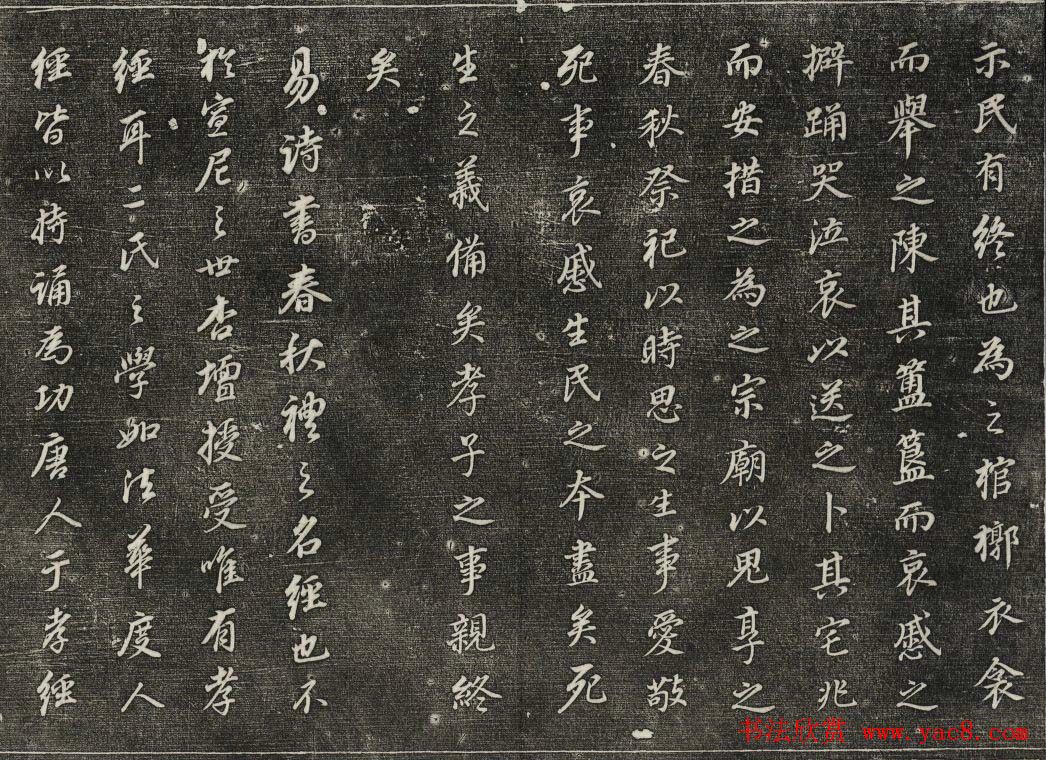 示民有終也為之棺槨衣衾
而舉之陳其簠簋而哀慼之
擗踊哭泣哀以送之卜其宅兆
而安措之為之宗廟以鬼享之
春秋祭祀以時思之生事愛敬
死事哀慼生民之本盡矣死
生之義備矣孝子之事親終
矣
易詩書春秋禮之名經也不
於宣尼之世杏壇授受唯有孝
經耳二氏之學如法華度人
經皆以持誦為功唐人于孝經
书法欣赏 www.yac8.com